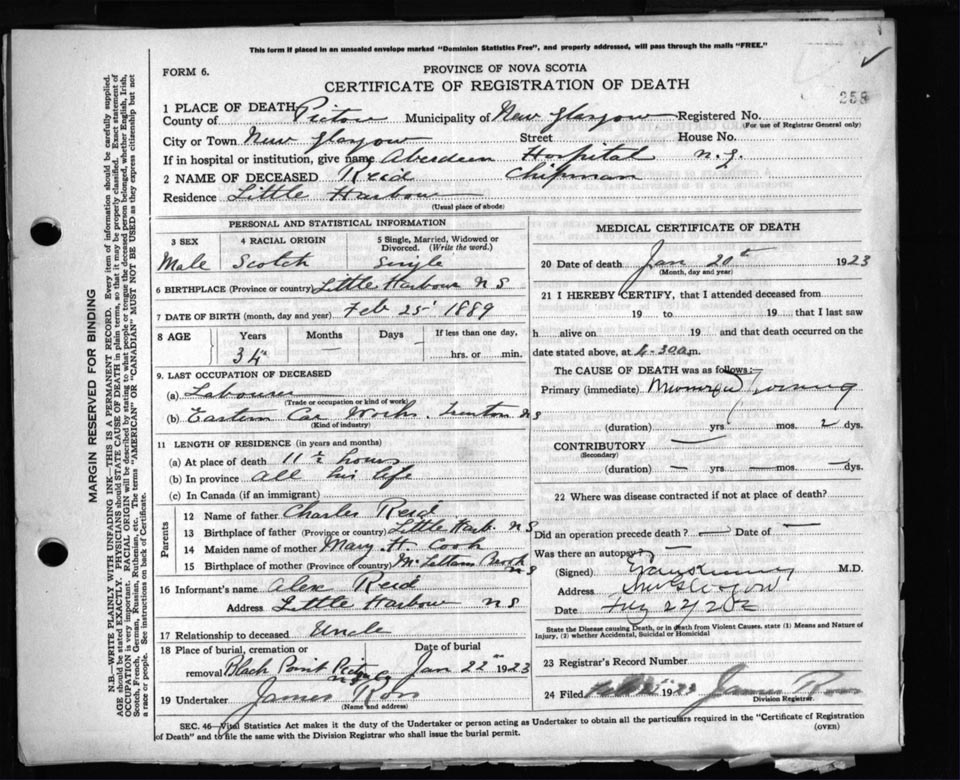 This form if placed in an unsealed envelope marked "Dominion Statistics Free", and properly addressed, will pass through the mails "FREE."
FORM 6.
PROVINCE OF NOVA SCOTIA
CERTIFICATE OF REGISTRATION OF DEATH
258
1 PLACE OF DEATH
County of Pictou Municipality of New Glasgow Registered No.
(For use of Registrar General only)
City or Town New Glasgow Street House No.
If in hospital or institution, give name Aberdeen Hospital N.G.
2 NAME OF DECEASED Reid Chipman
Residence Little Harbour
(Usual place of abode)
PERSONAL AND STATISTICAL INFORMATION
3 SEX 4 RACIAL ORIGIN 5 Single, Married, Widowed or Divorced. (Write the word.)
Male Scotch Single
6 BIRTHPLACE (Province or country) Little Harbour N S
7 DATE OF BIRTH (month, day and year) Feb 25 1889
8 AGE Years Months Days If less than one day,
34 — hrs. or min.
9. LAST OCCUPATION OF DECEASED
(a) Labourer
(Trade or occupation or kind of work)
(b) Eastern Car Works. Trenton N S
(Kind of industry)
11 LENGTH OF RESIDENCE (in years and months)
(a) At place of death 11 ½ hours
(b) In province all his life
(c) In Canada (if an immigrant)
Parents
12 Name of father Charles Reid
13 Birthplace of father (Province or country) Little Harb. N S
14 Maiden name of mother Mary H. Cook
15 Birthplace of mother (Province or country) Brook N S
16 Informant's name Alex Reid
Address Little Harbour N S
17 Relationship to deceased Uncle
18 Place of burial, cremation or removal Date of burial
Black Point Jan 22 1923
19 Undertaker James Ross
(Name and address)
MEDICAL CERTIFICATE OF DEATH
20 Date of death Jan 20th 1923
(Month, day and year)
21 I HEREBY CERTIFY, that I attended deceased from
19 to 19 that I last saw
h alive on 19 and that death occurred on
date stated above, at 4-30 a m.
The CAUSE OF DEATH was as follows:
Primary (immediate)
(duration) yrs. mos. 2 dys.
CONTRIBUTORY —
(Secondary)
(duration) — yrs. — mos. — dys.
22 Where was disease contracted if not at place of death?
Did an operation precede death? — Date of —
Was there an autopsy? —
(Signed) M.D.
Address
Date
State the Disease causing Death, or in death from Violent Causes, state (1) Means and Nature of Injury, (2) whether Accidental, Suicidal or Homicidal
23 Registrar's Record Number
24 Filed 1923 James Ross
Division Registrar.
SEC. 46—Vital Statistics Act makes it the duty of the Undertaker or person acting as Undertaker to obtain all the particulars required in the "Certificate of Registration
of Death" and to file the same with the Division Registrar who shall issue the burial permit.
(OVER)
MARGIN RESERVED FOR BINDING
N.B.—WRITE PLAINLY WITH UNFADING INK—THIS IS A PERMANENT RECORD. Every item of information should be carefully supplied.
AGE should be stated EXACTLY. PHYSICIANS should STATE CAUSE OF DEATH in plain terms, so that it may be properly classified. Exact statement of
OCCUPATION is very important. RACIAL ORIGIN will be described by stating to what people or tongue the deceased person belonged, whether English, Irish,
Scotch, French, German, Russian, Ruthenian, etc. The terms "AMERICAN" OR "CANADIAN" MUST NOT BE USED as they express citizenship but not
a race or people. See instructions on back of Certificate.